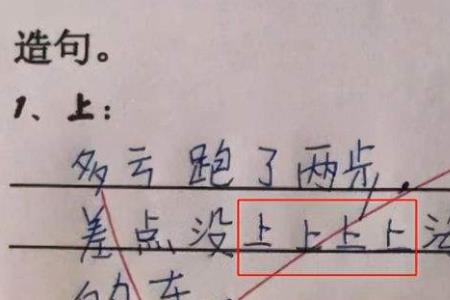 造句。
1、上:
多亏跑了两步,
差点没上上上上
的车